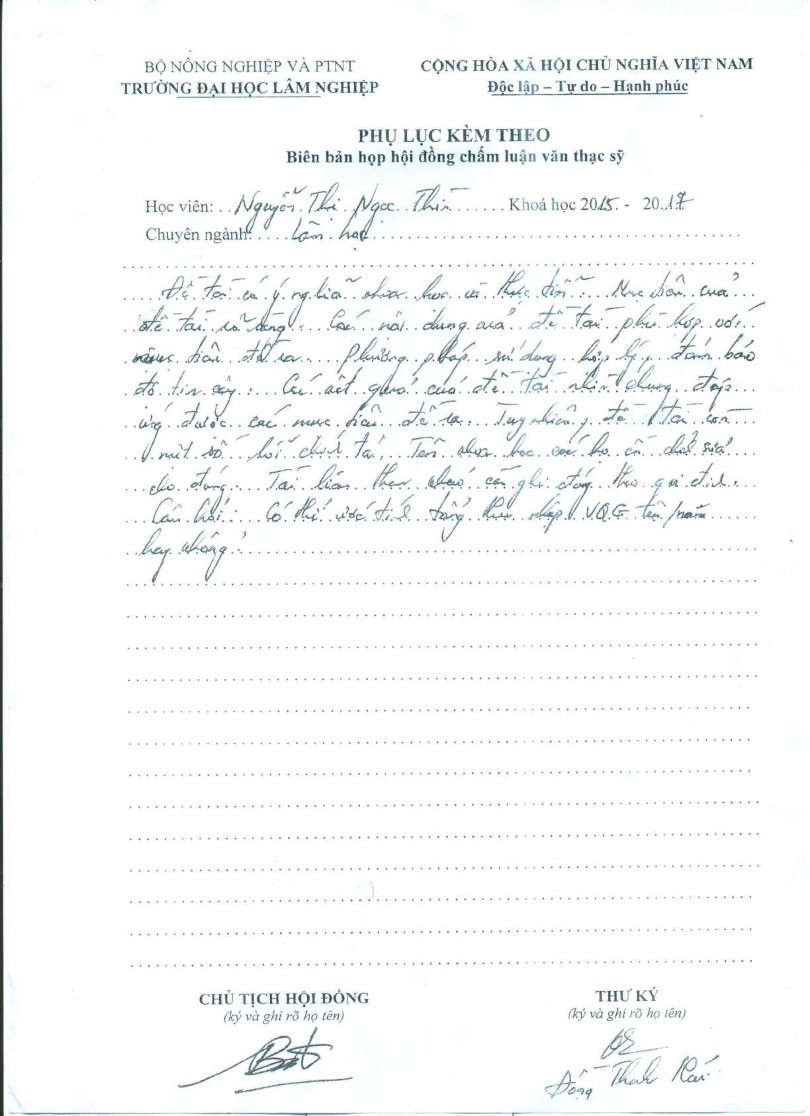 BỘ NÔNG NGHIỆP VÀ PTNT
TRƯỜNG ĐẠI HỌC LÂM NGHIỆP
CỘNG HÒA XÃ HỘI CHỦ NGHĨA VIỆT NAM
Độc lập – Tự do – Hạnh phúc
PHỤ LỤC KÈM THEO
Biên bản họp hội đồng chấm luận văn thạc sỹ
Học viên: Nguyễn Thị Ngọc Thìn Khoá học 2015 - 2017
Chuyên ngành: Lâm học
Đề tài có ý nghĩa khoa học và thực tiễn. Mục tiêu của
đề tài rõ ràng. Các nội dung của đề tài phù hợp với
mục tiêu đề ra. Phương pháp sử dụng hợp lý, đảm bảo
độ tin cậy. Các kết quả của đề tài nhìn chung đáp
ứng được các mục tiêu đề ra. Tuy nhiên, đề tài còn
một số lỗi chính tả. Tên khoa học các họ cần chỉnh sửa
cho đúng. Tài liệu tham khảo cần ghi đúng theo qui định.
Câu hỏi: Có thể ước tính tổng thu nhập VQG trên/năm
hay không?
CHỦ TỊCH HỘI ĐỒNG
(ký và ghi rõ họ tên)
THƯ KÝ
(ký và ghi rõ họ tên)
Đồng Thanh